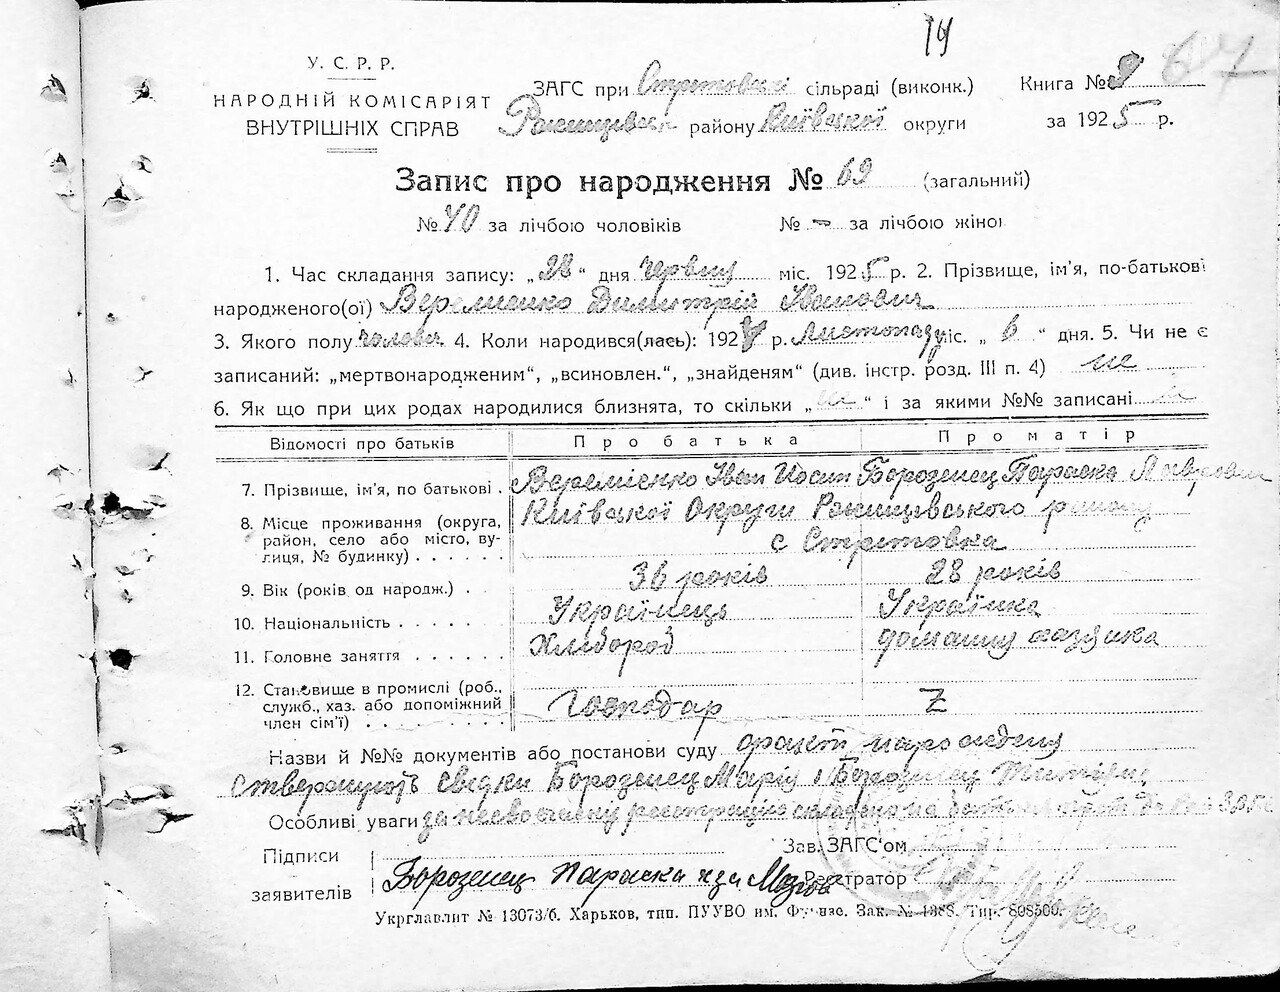 14
У. С. Р. Р.
НАРОДНІЙ КОМІСАРІЯТ
ВНУТРІШНІХ СПРАВ
ЗАГС при Стритовскі сільраді (виконк.)
Ракищевськ району Київської округи
Книга №
за 1925 р.
Запис про народження № 69 (загальний)
№ 40 за лічбою чоловіків № – за лічбою жіно
1. Час складання запису: „28“ дня червня міс. 1925 р. 2. Прізвище, ім'я, по-батькові
народженого(ої) Веремиенко Димитрій Іванович
3. Якого полу чоловіч 4. Коли народився(лась): 1924 р. листопаду міс. „6“ дня. 5. Чи не є
записаний: „мертвонародженим“, „всиновлен.“, „знайденям“ (див. інстр. розд. III п. 4) ні
6. Як що при цих родах народилися близнята, то скільки „ “ і за якими №№ записані
Відомості про батьків Про батька Про матір
7. Прізвище, ім'я, по батькові . Веремієнко Іван Йосип Борозенец Параска
8. Місце проживання (округа, район, село або місто, вулиця, № будинку) . . . . . Київської Округи Ракищевського району
с Стритовка
9. Вік (років од народж.) . 36 років 28 років
10. Національність . . . . . Українець Українка
11. Головне заняття . . . . . . Хлібороб
12. Становище в промислі (роб.,
служб., хаз. або допоміжний
член сім'ї) . . . . . . . . Господар Z
Назви й №№ документів або постанови суду факт народження
стверджують свідки Борозенец Марія і Борозенец
Особливі уваги за несвоєчасну реєстрацію складено на
Підписи
заявителів
Борозенец Параска
Зав. ЗАГС'ом
Реєстратор
Укрглавлит № 13073/б. Харьков, тип. ПУУВО им. Фрунзе. Зак. № 1388. Тир. 808500.